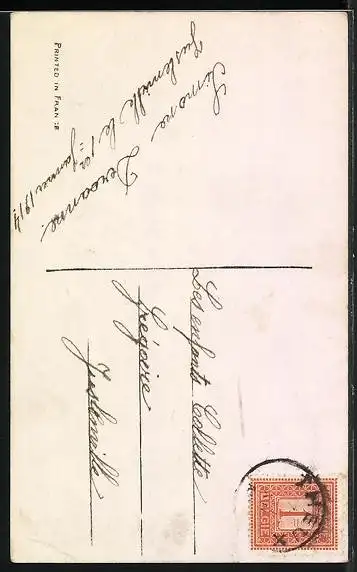 PRINTED IN FRANCE
Simone Deroanne.
Juslenville le 1er
janvier 1914
Les enfants Collette
Grégoire
Juslenville
THEUX
1